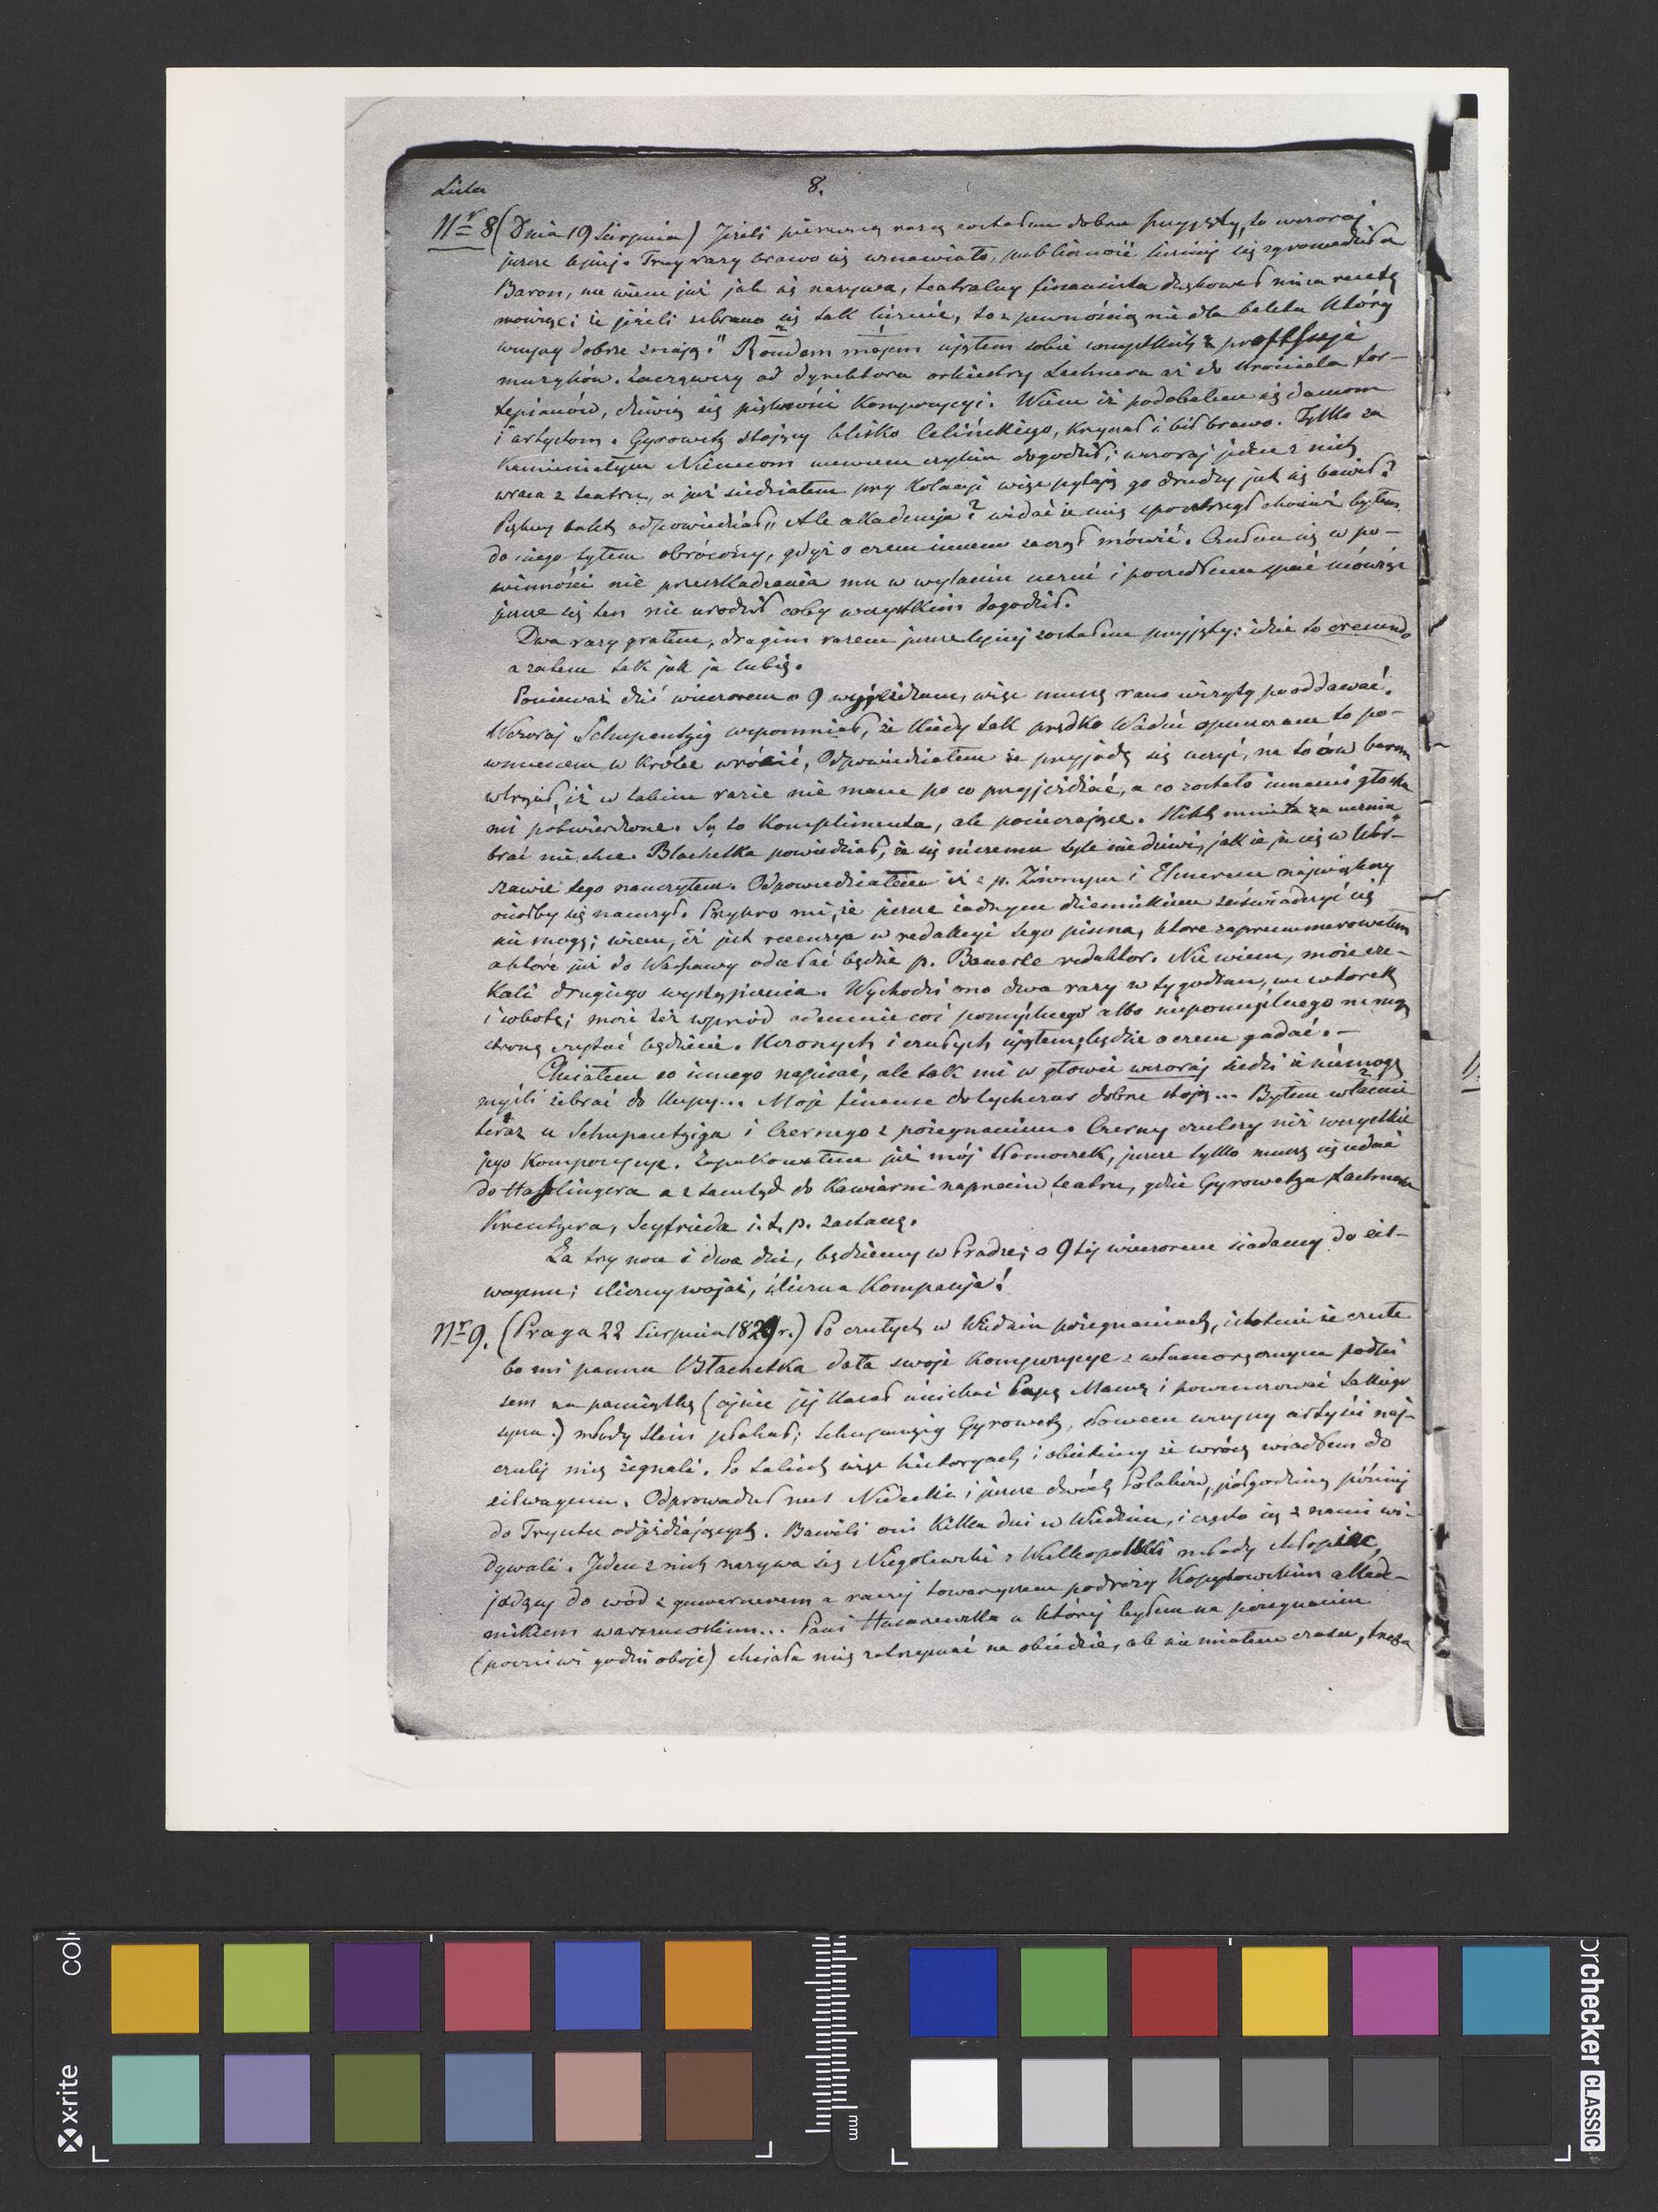 Lista 8.
Nr 8 (Dnia 19 Sierpnia) Jeżeli pierwszą razą zostałem dobrze przyjęty, to wczoraj
jeszcze lepiej. Trzy razy brawo się wznawiało, publiczność liczniej się zgromadziła
Baron, nie wiem już jak się nazywa, teatralny finansista dziękował mi za recetę
mówiąc; iż jeżeli zebrano się tak licznie, to z pewnością nie dla baletu który
wszyscy dobrze znają." Rondem mojem ująłem sobie wszystkich z proffessyi
muzyków. Zacząwszy od dyrektora orkiestry Lachnera aż do stroiciela for-
tepianów, dziwią się piękności kompozycyi. Wiem iż podobałem się damom
i artystom. Gyrowetz stojący blisko Celińskiego, krzyczał i bił brawo. Tylko za
kamieniałym Niemcom niewiem czylim dogodził; wczoraj jeden z nich
wraca z teatru, a już siedziałem przy kolacyi więc pytają go drudzy jak się bawił?
Piękny balet, odpowiedział „ Ale akademija? widać że mię spostrzegł chociaż byłem
do niego tyłem obrócony, gdyż o czem innem zaczął mówić. Czułem się w po-
winności nie przeszkadzania mu w wylaniu uczuć i poszedłem spać mówiąc
jeszcze się ten nie urodził coby wszystkim dogodził.
Dwa razy grałem, drugim razem jeszcze lepiej zostałem przyjęty; idzie to crescendo
a zatem tak jak ja lubię.
Ponieważ dziś wieczorem o 9 wyjeżdżam, więc muszę rano wizyty pooddawać.
Wczoraj Schupantzig wspomniał, że kiedy tak prędko Wiedeń opuszczam to po-
winienem w krótce wrócić, Odpowiedziałem że przyjadę się uczyć, na to ów baron
wtrącił, iż w takim razie nie mam po co przyjeżdżać, a co zostało innemi głoska
mi potwierdzone. Są to komplimenta, ale pocieszające. Nikt mnie tu za ucznia
brać nie chce. Blachetka powiedział, że się niczemu tyle nie dziwi, jak że ja się w War-
szawie tego nauczyłem. Odpowiedziałem iż z p. Żiwnym i Elsnerem największy
osiołby się nauczył. Przykro mi, że jeszcze żadnym dziennikiem zaświadczyć się
nie mogę; wiem, iż jest recenzya w redakcyi tego pisma, które zaprenumerowałem
a które już do Warszawy odsełać będzie p. Bäuerle redaktor. Nie wiem, może cze-
kali drugiego wystąpienia. Wychodzi ono dwa razy w tygodniu, we wtorek
i sobotę; może też wprzód odemnie coś pomyślnego albo niepomyślnego na mą
stronę czytać będziecie. Uczonych i czułych ująłem, będzie o czem gadać. —
Chciałem co innego napisać, ale tak mi w głowie wczoraj siedzi iż niemogę
myśli zebrać do kupy... Moje finanse dotychczas dobrze stoją... Byłem właśnie
teraz u Schupantziga i Czernego z pożegnaniem. Czerny czulszy niż wszystkie
jego kompozycye. Zapakowałem już mój tłomoczek, jeszcze tylko muszę się udać
do Hasslingera a z tamtąd do kawiarni naprzeciw teatru, gdzie Gyrowetza Lachnera
Kreutzera, Seyfrieda i. t. p. zastanę.
Za trzy noce i dwa dni, będziemy w Pradze; o 9tej wieczorem siadamy do eil-
wagenu; śliczny wojaż, śliczna kompanija!
Nr 9. (Praga 22 Sierpnia 1829 r.) Po czułych w Wiedniu pożegnaniach, istotnie że czułe
bo mi panna Blachetka dała swoje kompozycye z własnoręcznym podpi
sem na pamiątkę (ojciec jej kazał uściskać Papę Mamę i powinszować takiego
syna.) młody Stein płakał; Schupanzig Gyrowetz, słowem wszyscy artyści naj-
czulej mię żegnali. Po takich więc historyach i obietnicy że wrócę wsiadłem do
eilwagenu. Odprowadził nas Nidecki i jeszcze dwóch Polaków, półgodziną później
do Tryestu odjeżdżających. Bawili oni kilka dni w Wiedniu, i często się z nami wi-
dywali. Jeden z nich nazywa się Niegolewski z Wielkopolski młody chłopiec,
jadący do wód z guwernerem a raczej towarzyszem podróży Kopytowskim akade-
mikiem warszawskim... Pani Hussarzewska u której byłem na pożegnaniu
(poczciwi godni oboje) chciała mię zatrzymać na obiedzie, ale nie miałem czasu, trzeba